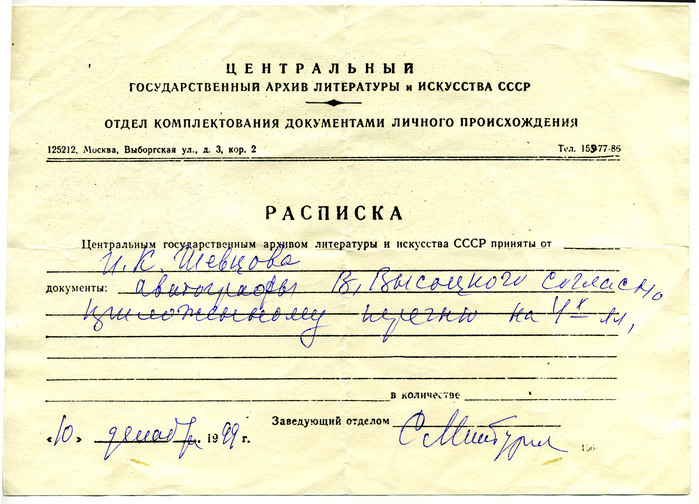 ЦЕНТРАЛЬНЫЙ
ГОСУДАРСТВЕННЫЙ АРХИВ ЛИТЕРАТУРЫ и ИСКУССТВА СССР
ОТДЕЛ КОМПЛЕКТОВАНИЯ ДОКУМЕНТАМИ ЛИЧНОГО ПРОИСХОЖДЕНИЯ
125212, Москва, Выборгская ул., д. 3, кор. 2 Тел. 159-77-86
РАСПИСКА
Центральным государственным архивом литературы и искусства СССР приняты от
И. К. Шевцова
документы: автографы В. Высоцкого согласно
приложенному перечню на 4х лл.
в количестве
Заведующий отделом
«10» декабря 1999 г.